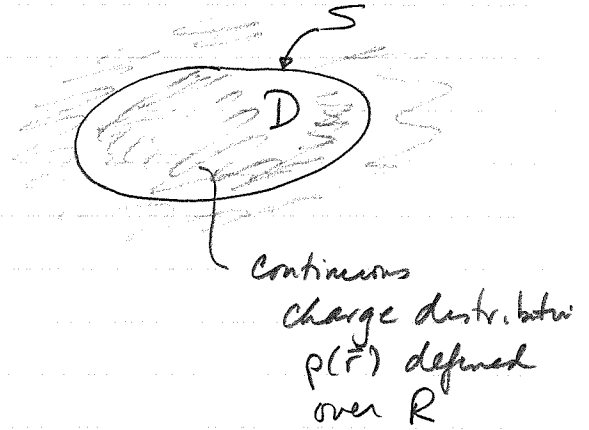 S
D
continuous
charge distribution
ρ(r⃗) defined
over R